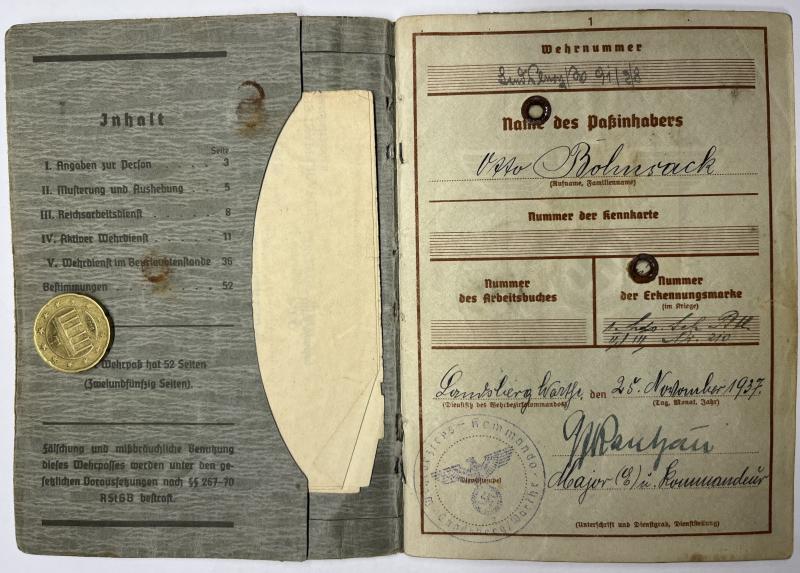 Inhalt
Seite
I. Angaben zur Person . . . . 3
II. Musterung und Aushebung . . . 5
III. Reichsarbeitsdienst . . . . 8
IV. Aktiver Wehrdienst . . . . 11
V. Wehrdienst im Beurlaubtenstande 36
Bestimmungen . . . . 52
Wehrpaß hat 52 Seiten
(Zweiundfünfzig Seiten).
Fälschung und mißbräuchliche Benutzung
dieses Wehrpasses werden unter den ge-
setzlichen Voraussetzungen nach §§ 267-70
RStGB bestraft.
1
Wehrnummer
91/
Name des Paßinhabers
Otto Bohnsack
(Rufname, Familienname)
Nummer der Kennkarte
Nummer
des Arbeitsbuches
Nummer
der Erkennungsmarke
(im Kriege)
Landsberg Warthe, den 25. November 1937.
(Dienstsitz des Wehrbezirkskommandos)
(Tag, Monat, Jahr)
Kommando
Landsberg/Warthe
(Dienststempel)
Major (E) u. Kommandeur
(Unterschrift und Dienstgrad, Dienststellung)